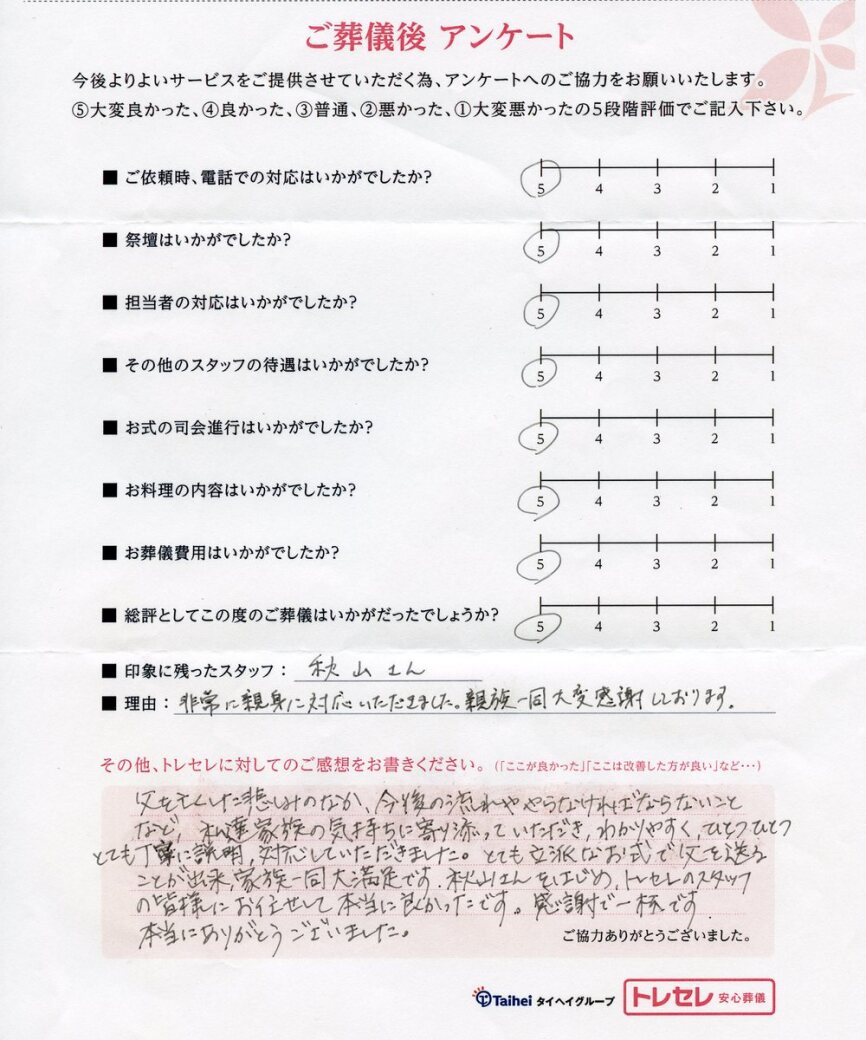 ご葬儀後 アンケート
今後よりよいサービスをご提供させていただく為、アンケートへのご協力をお願いいたします。
⑤大変良かった、④良かった、③普通、②悪かった、①大変悪かったの5段階評価でご記入下さい。
■ ご依頼時、電話での対応はいかがでしたか?
5 4 3 2 1
■ 祭壇はいかがでしたか?
5 4 3 2 1
■ 担当者の対応はいかがでしたか?
5 4 3 2 1
■ その他のスタッフの待遇はいかがでしたか?
5 4 3 2 1
■ お式の司会進行はいかがでしたか?
5 4 3 2 1
■ お料理の内容はいかがでしたか?
5 4 3 2 1
■ お葬儀費用はいかがでしたか?
5 4 3 2 1
■ 総評としてこの度のご葬儀はいかがだったでしょうか?
5 4 3 2 1
■ 印象に残ったスタッフ : 秋山さん
■ 理由 : 非常に親身に対応いただきました。親族一同大変感謝しております。
その他、トレセレに対してのご感想をお書きください。(「ここが良かった」「ここは改善した方が良い」など…)
父を亡くした悲しみのなか、今後の流れややらなければならないこと
など、私達家族の気持ちに寄り添っていただき、わかりやすく、ひとつひとつ
とても丁寧に説明、対応していただきました。とても立派なお式で父を送る
ことが出来、家族一同大満足です。秋山さんをはじめ、トレセレのスタッフ
の皆様にお任せして本当に良かったです。感謝で一杯です
本当にありがとうございました。
ご協力ありがとうございました。
Taihei タイヘイグループ トレセレ 安心葬儀